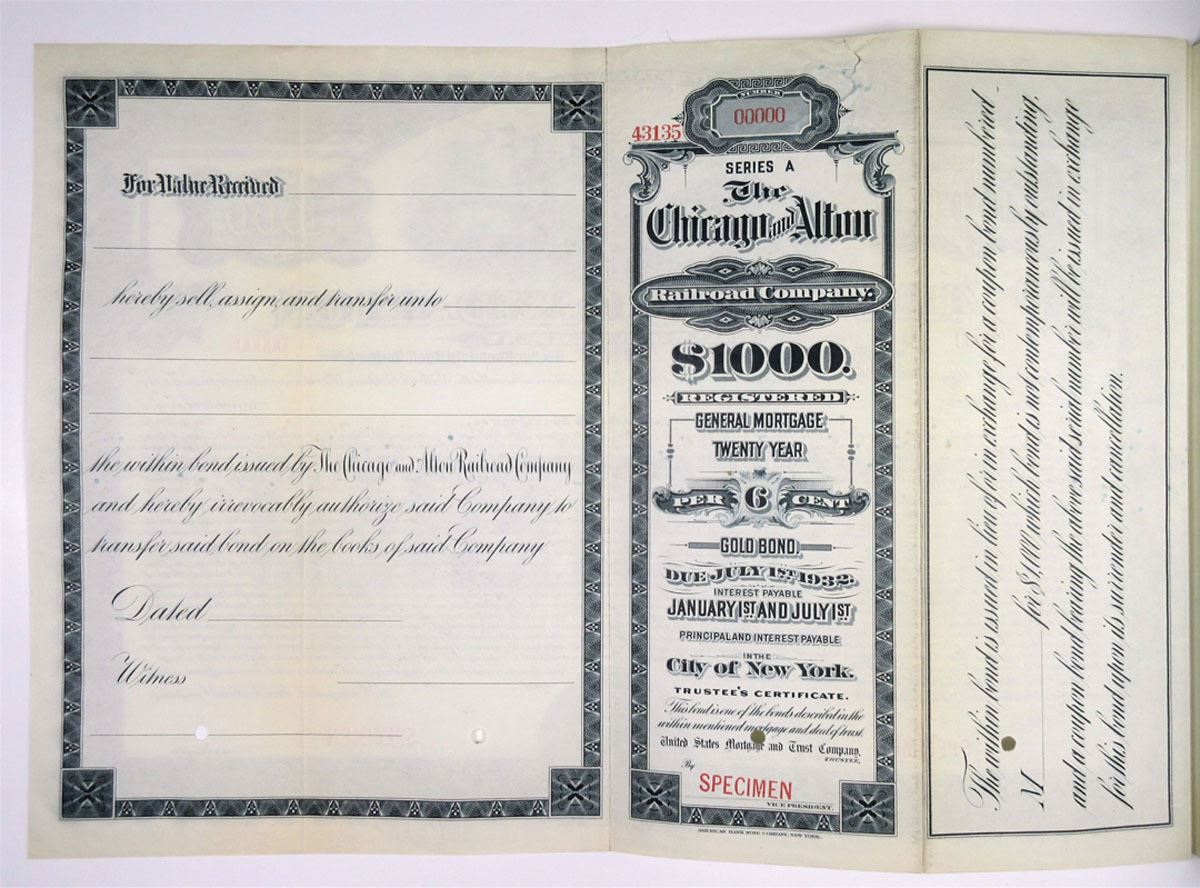 For Value Received
hereby sell, assign, and transfer unto
the within bond issued by The Chicago and Alton Railroad Company
and hereby irrevocably authorize said Company to
transfer said bond on the books of said Company
Dated
Witness
NUMBER
00000
43135
SERIES A
The
Chicago and Alton
Railroad Company.
$1000.
REGISTERED
GENERAL MORTGAGE
TWENTY YEAR
PER 6 CENT
GOLD BOND.
DUE JULY 1ST 1932.
INTEREST PAYABLE
JANUARY 1ST AND JULY 1ST
PRINCIPAL AND INTEREST PAYABLE
IN THE
City of New York.
TRUSTEE'S CERTIFICATE.
This bond is one of the bonds described in the
within mentioned mortgage and deed of trust.
United States Mortgage and Trust Company,
TRUSTEE,
By
SPECIMEN
VICE PRESIDENT.
AMERICAN BANK NOTE COMPANY, NEW YORK.
The within bond is issued in lieu of or in exchange for a coupon bond numbered
M for $1,000 which bond is not contemporaneously outstanding,
and a coupon bond bearing the above said serial number will be issued in exchange
for this bond upon its surrender and cancellation.